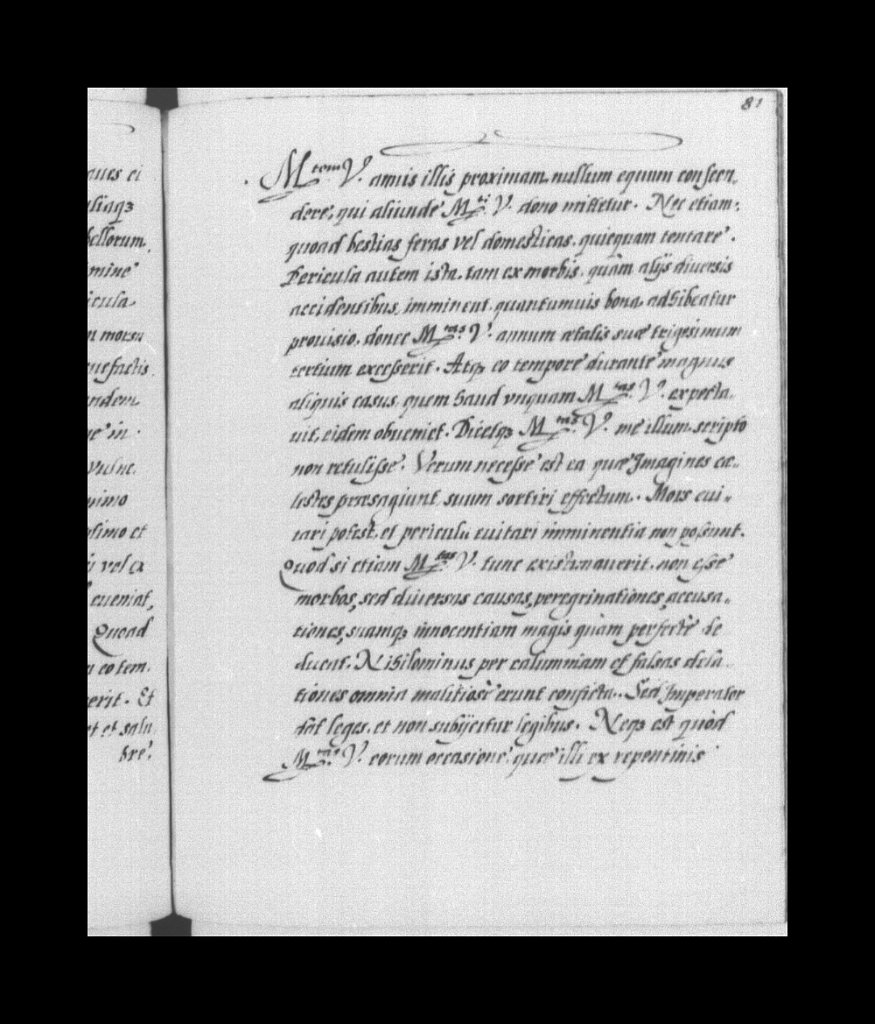 81
ques ci
aliaqз
bellorum,
mine
icula
n morsu
nefactis.
andem
ve in
vulne.
nimo
ssimo et
vel ex
eueniat,
Quoad
eo tem.
erit. Et
et et salu
bre.
Mtem V. annis illis proximam nullum equum conscen,
dere, qui aliunde Mti V. dono mittetur. Nec etiam
quoad bestias feras vel domesticas, quicquam tentare.
Pericula autem ista, tam ex morbis, quàm alijs diuersis
accidentibus, imminent, quantumuis bona adhibeatur
prouisio, donec Mtas V. annum ætatis suæ trigesimum
tertium excesserit. Atqз eo tempore durante magnus
aliquis casus, quem haud vnquam Mtas V. expecta,
uit, eidem obueniet. Dicetqз Mtas V. me illum scripto
non retulisse. Verum necesse est ea quæ Imagines cæ,
lestes præsagiunt, suum sortiri effectum. Mors eui,
tari potest, et pericula euitari imminentia non possunt.
Quod si etiam Mtas V. tunc existimauerit, non esse
morbos, sed diuersas causas, peregrinationes, accusa,
tiones, suamqз innocentiam magis quàm perfectè de
ducat. Nihilominus per calumniam et falsas dela,
tiones omnia malitiosè erunt conficta. Sed Imperator
dat leges, et non subijcitur legibus. Neqз est quòd
Mtas V. eorum occasione, quæ illi ex repentinis